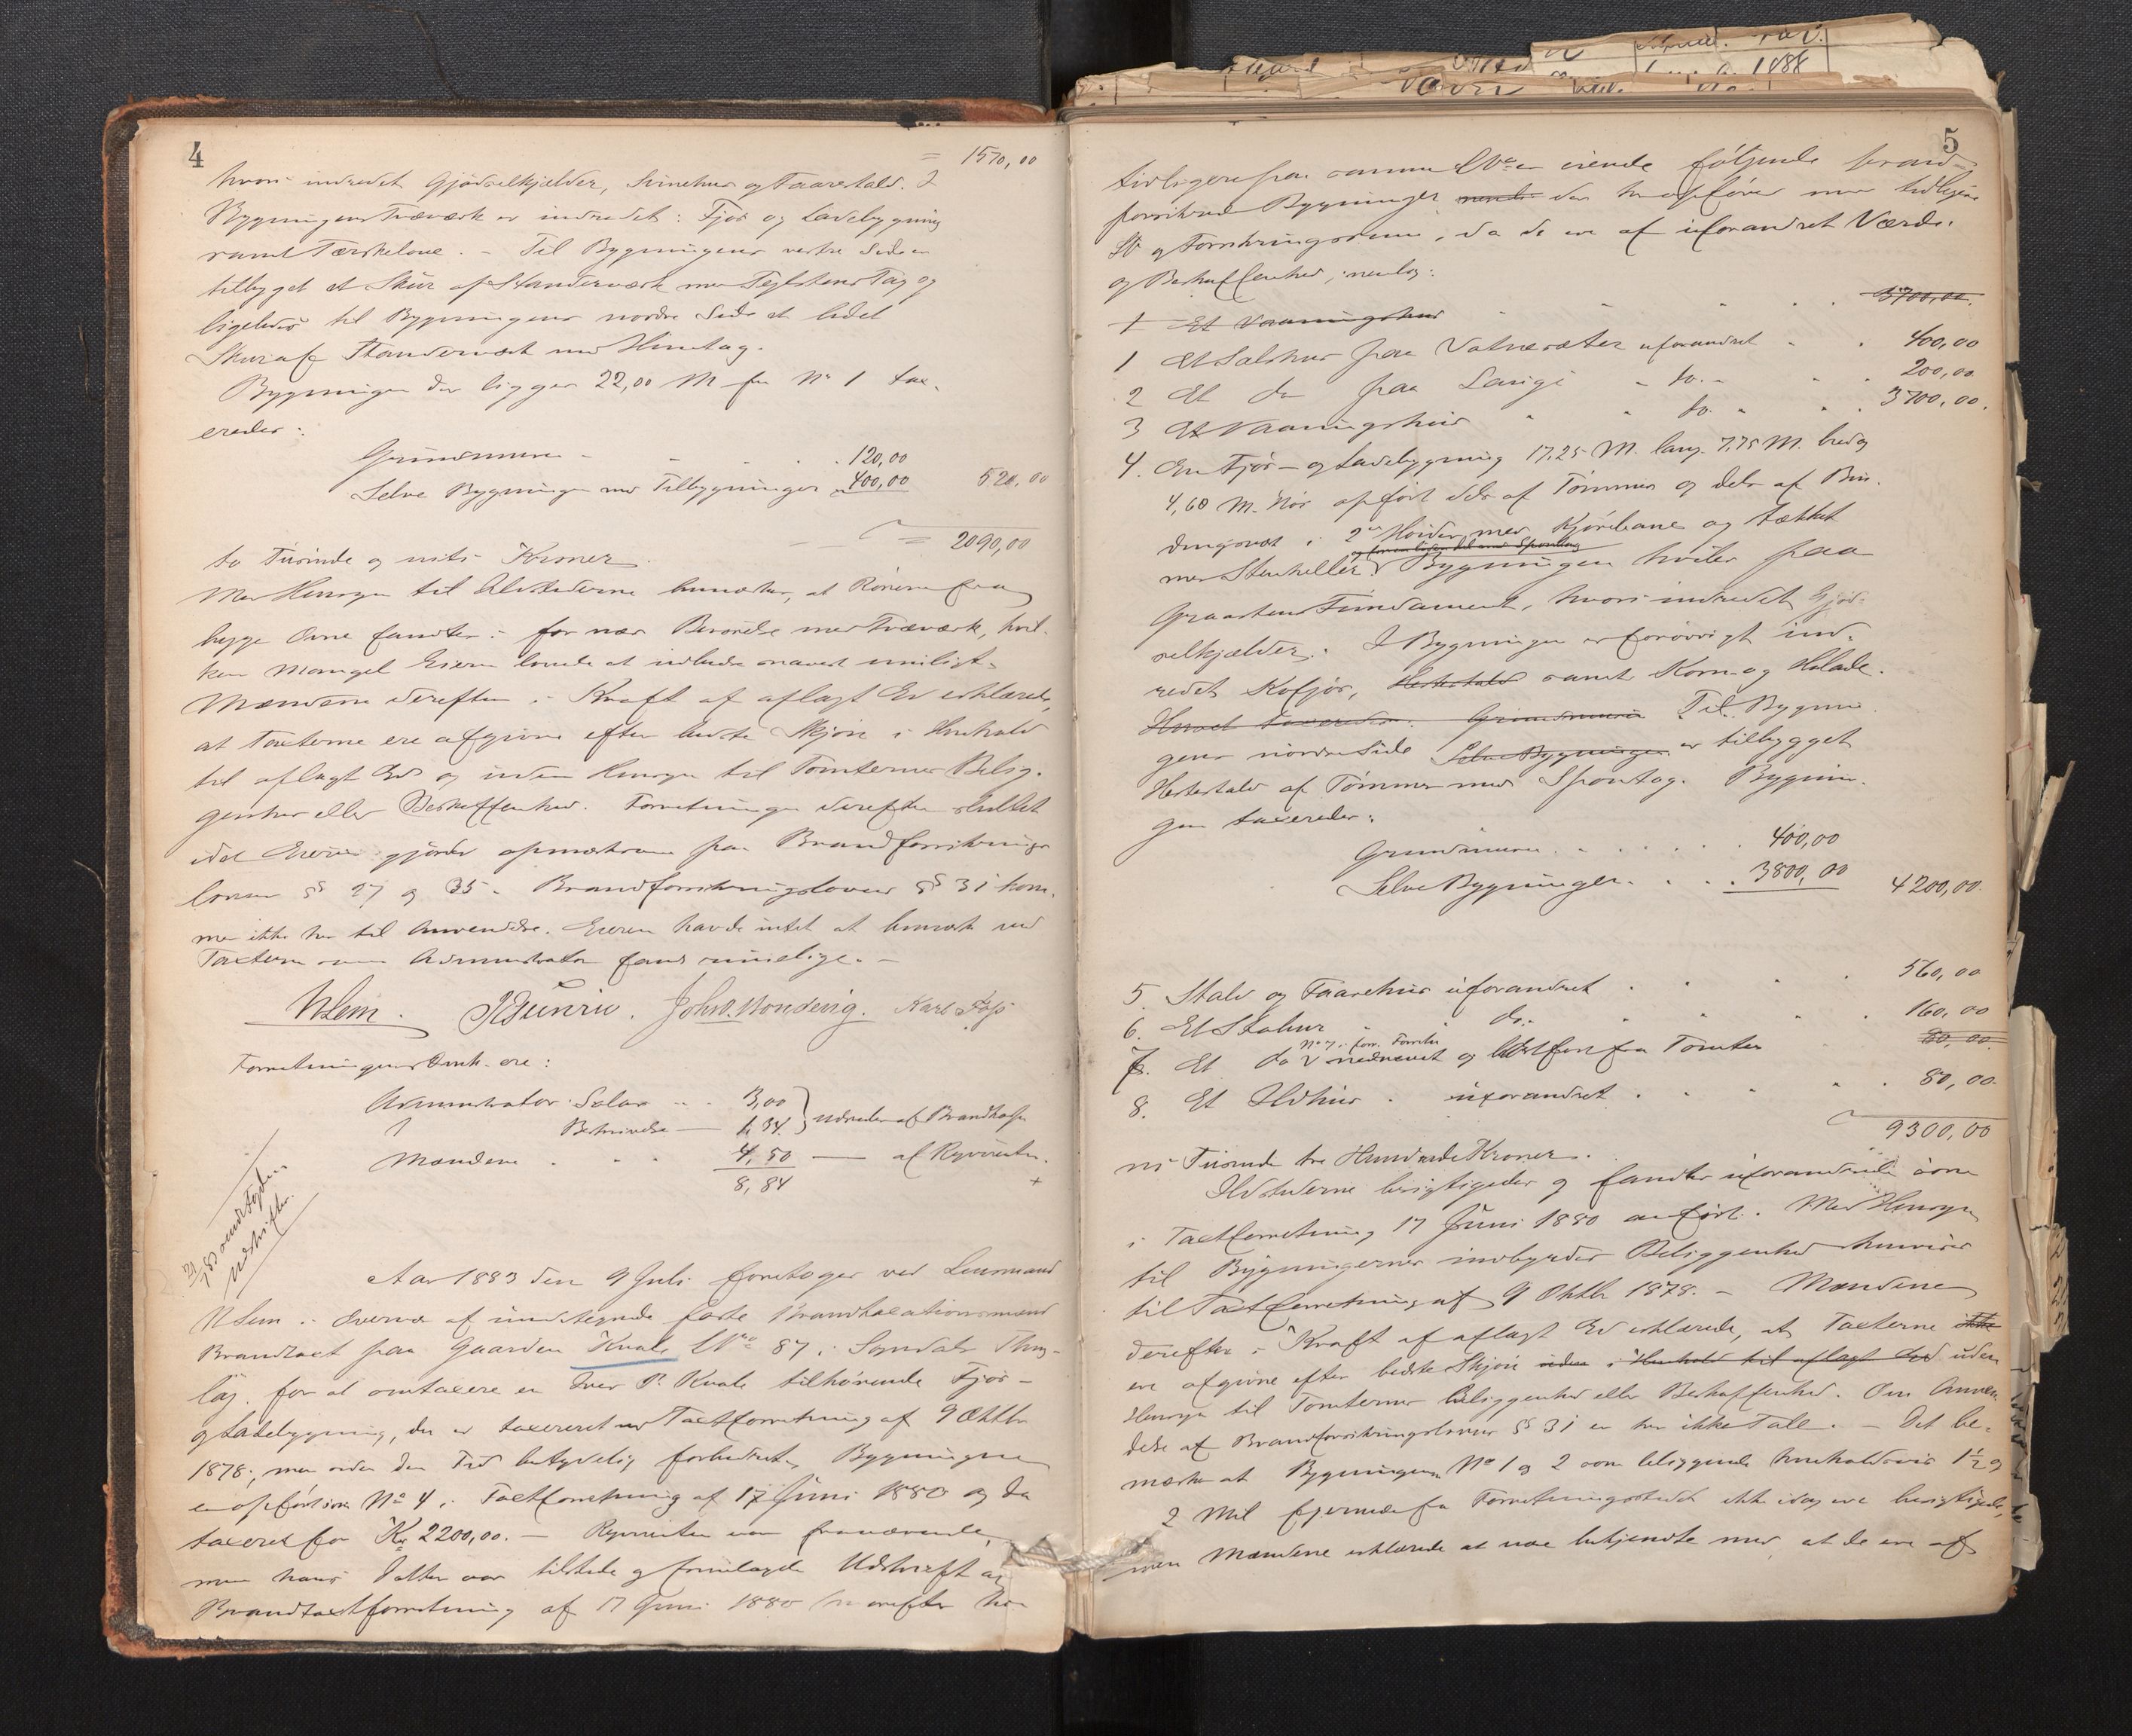 4
= 1570,00
hvori indredet Gjødselkjælder, Svinehus og Faarestald. I
Bygningens Træværk er indredet: Fjøs og Ladebygning
samt Tærskeloue. - Til Bygningens vestre Side er
tilbygget et Skur af Standerværk med Teglstens Tag og
ligeledes til Bygningens nordre Side et lidet
Skur af Standerværk med Huntag.
Bygningen der ligger 22,00 M fra No 1 tax-
eredes:
Grundmuren - - - . 120,00
Selve Bygningen med Tilbygninger 400,00 520,00
= 2090,00
to Tusinde og niti Kroner
Med Hensyn til Ildstederne bemærkes, at Rørene fra
begge Ovne fandtes i for nær Berørelse med Træværk, hvil-
ken Mangel Eieren lovede at udbedre snarest muligt.
Mændene derefter i Kraft af aflagt Ed erklærede,
at Taxterne ere afgivne efter bedste Skjøn i Henhold
til aflagt Ed og uden Hensyn til Tomternes Belig-
genhed eller Beskaffenhed. Forretningen derefter sluttet
idet Eieren gjordes opmærksom paa Brandforsikrings
lovens §§ 27 og 35. Brandforsikringslovens §§ 31 kom-
mer ikke her til Anvendelse. Eieren havde intet at bemærke ved
Taxterne som Administrator fandt rimelige. -
NLem. John O. Nondevig. Karl
Forretningens Omk. ere:
Administrator: Salær - - 3,00
Beskrivelse — 1,34 udredes af Brandkassen
Mændene . . . 4,50 — af Rqvirenten.
8,84 +
Aar 1883 den 9 Juli foretoges ved Lensmand
N Lem i Overvær af undertegnede faste Brandtaxationsmænd
Brandtaxt paa Gaarden Kvale LNo 87 i Sogndals Thing-
lag for at omtaxere en Iver P. Kvale tilhørende Fjøs-
og Ladebygning, der er taxeret ved Taxtforretning af 9 Oktbr
1878, men siden den Tid betydelig forbedret. Bygningen
er opført som No 4 i Taxtforretning af 17 Juni 1880 og da
taxeret for Kr 2200,00. — Rqvirenten var fraværende,
men hans Datter var tilstede og fremlagde Udskrift af
Brandtaxtforretning af 17 Juni 1880 hvorefter han
5
tidligere paa samme LNo er eiende følgende brand-
forsikrede Bygninger der her opføres med tidligere
No og Forsikringssum, da de ere af uforandret Værdi
og Beskaffenhed, nemlig:
1 Et Vaaningshus . . . . 3700,00.
1 Et Selshus paa Vatnesæter uforandret - . 400,00
2 Et do paa Laugi - do. - . . 200,00
3 Et Vaaningshus - - do. - . . 3700,00.
4. En Fjøs- og Ladebygning 17,25 M. lang 7,75 M. bred og
4,60 M. høi opført dels af Tømmer og dels af Bin-
dingsværk i 2de Høider med Kjørebane og tækket
med Stenheller. Bygningen hviler paa
Graastens Fundament, hvori indredet Gjød-
selkjælder. I Bygningen er forøvrigt ind-
redet Kofjøs, Hestestald samt Korn- og Hølade.
Grundmuren Til Bygnin-
gens nordre Side Selve Bygningen er tilbygget
Hestestald af Tømmer med Spontag. Bygnin-
gen taxeredes:
Grundmuren . . . . . . 400,00
Selve Bygningen . . . . 3800,00 4200,00.
5. Stald og Faarehus uforandret . . . . 560,00
6. Et Stabur - - do. . . . . 160,00
No 7 i forr. Forretn.
7. Et do nedrevet og bortført fra Tomten 80,00.
8. Et Ildhus . uforandret . . . . . 80,00.
9300,00
ni Tusinde tre Hundrede Kroner.
Ildstederne besigtigedes og fandtes uforandrede som
i Taxtforretning 17 Juni 1880 anført. Med Hensyn
til Bygningernes indbyrdes Beliggenhed henvises
til Taxtforretning af 9 Oktbr 1878. — Mændene
derefter i Kraft af aflagt Ed erklærede, at Taxterne ikke
ere afgivne efter bedste Skjøn uden i Henhold til aflagt Ed uden
Hensyn til Tomternes Beliggenhed eller Beskaffenhed. Om Anven-
delse af Brandforsikringslovens §§ 31 er her ikke Tale. — Det be-
mærkes at Bygningerne No 1 og 2 som beliggende henholdsvis 1½ og
2 Mil fjernede fra Forretningsstedet ikke idag ere besigtigede,
men Mændene erklærede at være bekjendte med, at de ere af